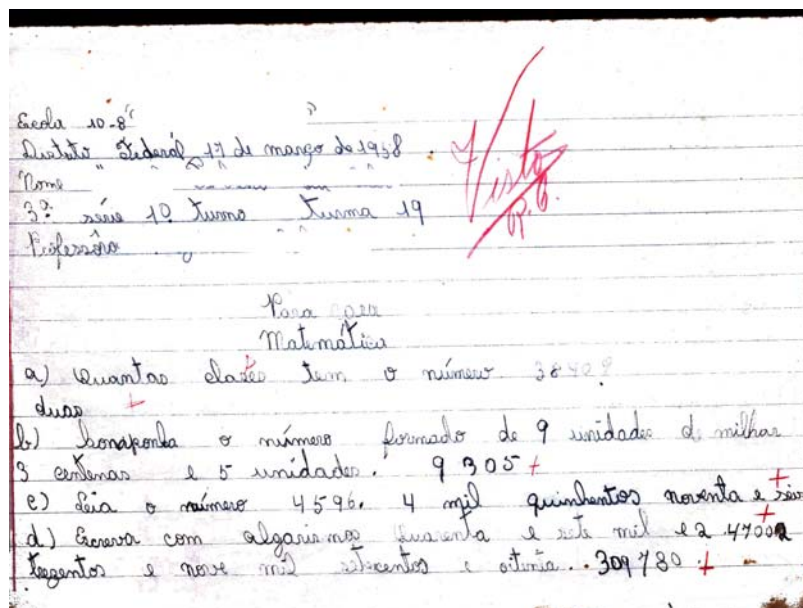 Escola 10-8
Distrito Federal, 17 de março de 1958
Nome
3ª série 1º turno Turma 19
Professôra
Visto
Para casa
Matemática
a) Quantas clases tem o número 3840?
duas
b) Componha o número formado de 9 unidades de milhar
3 centenas e 5 unidades. 9 305
c) Leia o número 4596. 4 mil quinhentos noventa e seis
d) Escreva com algarismos Quarenta e sete mil e 2. 47002
trezentos e nove mil setecentos e oitenta.. 309780